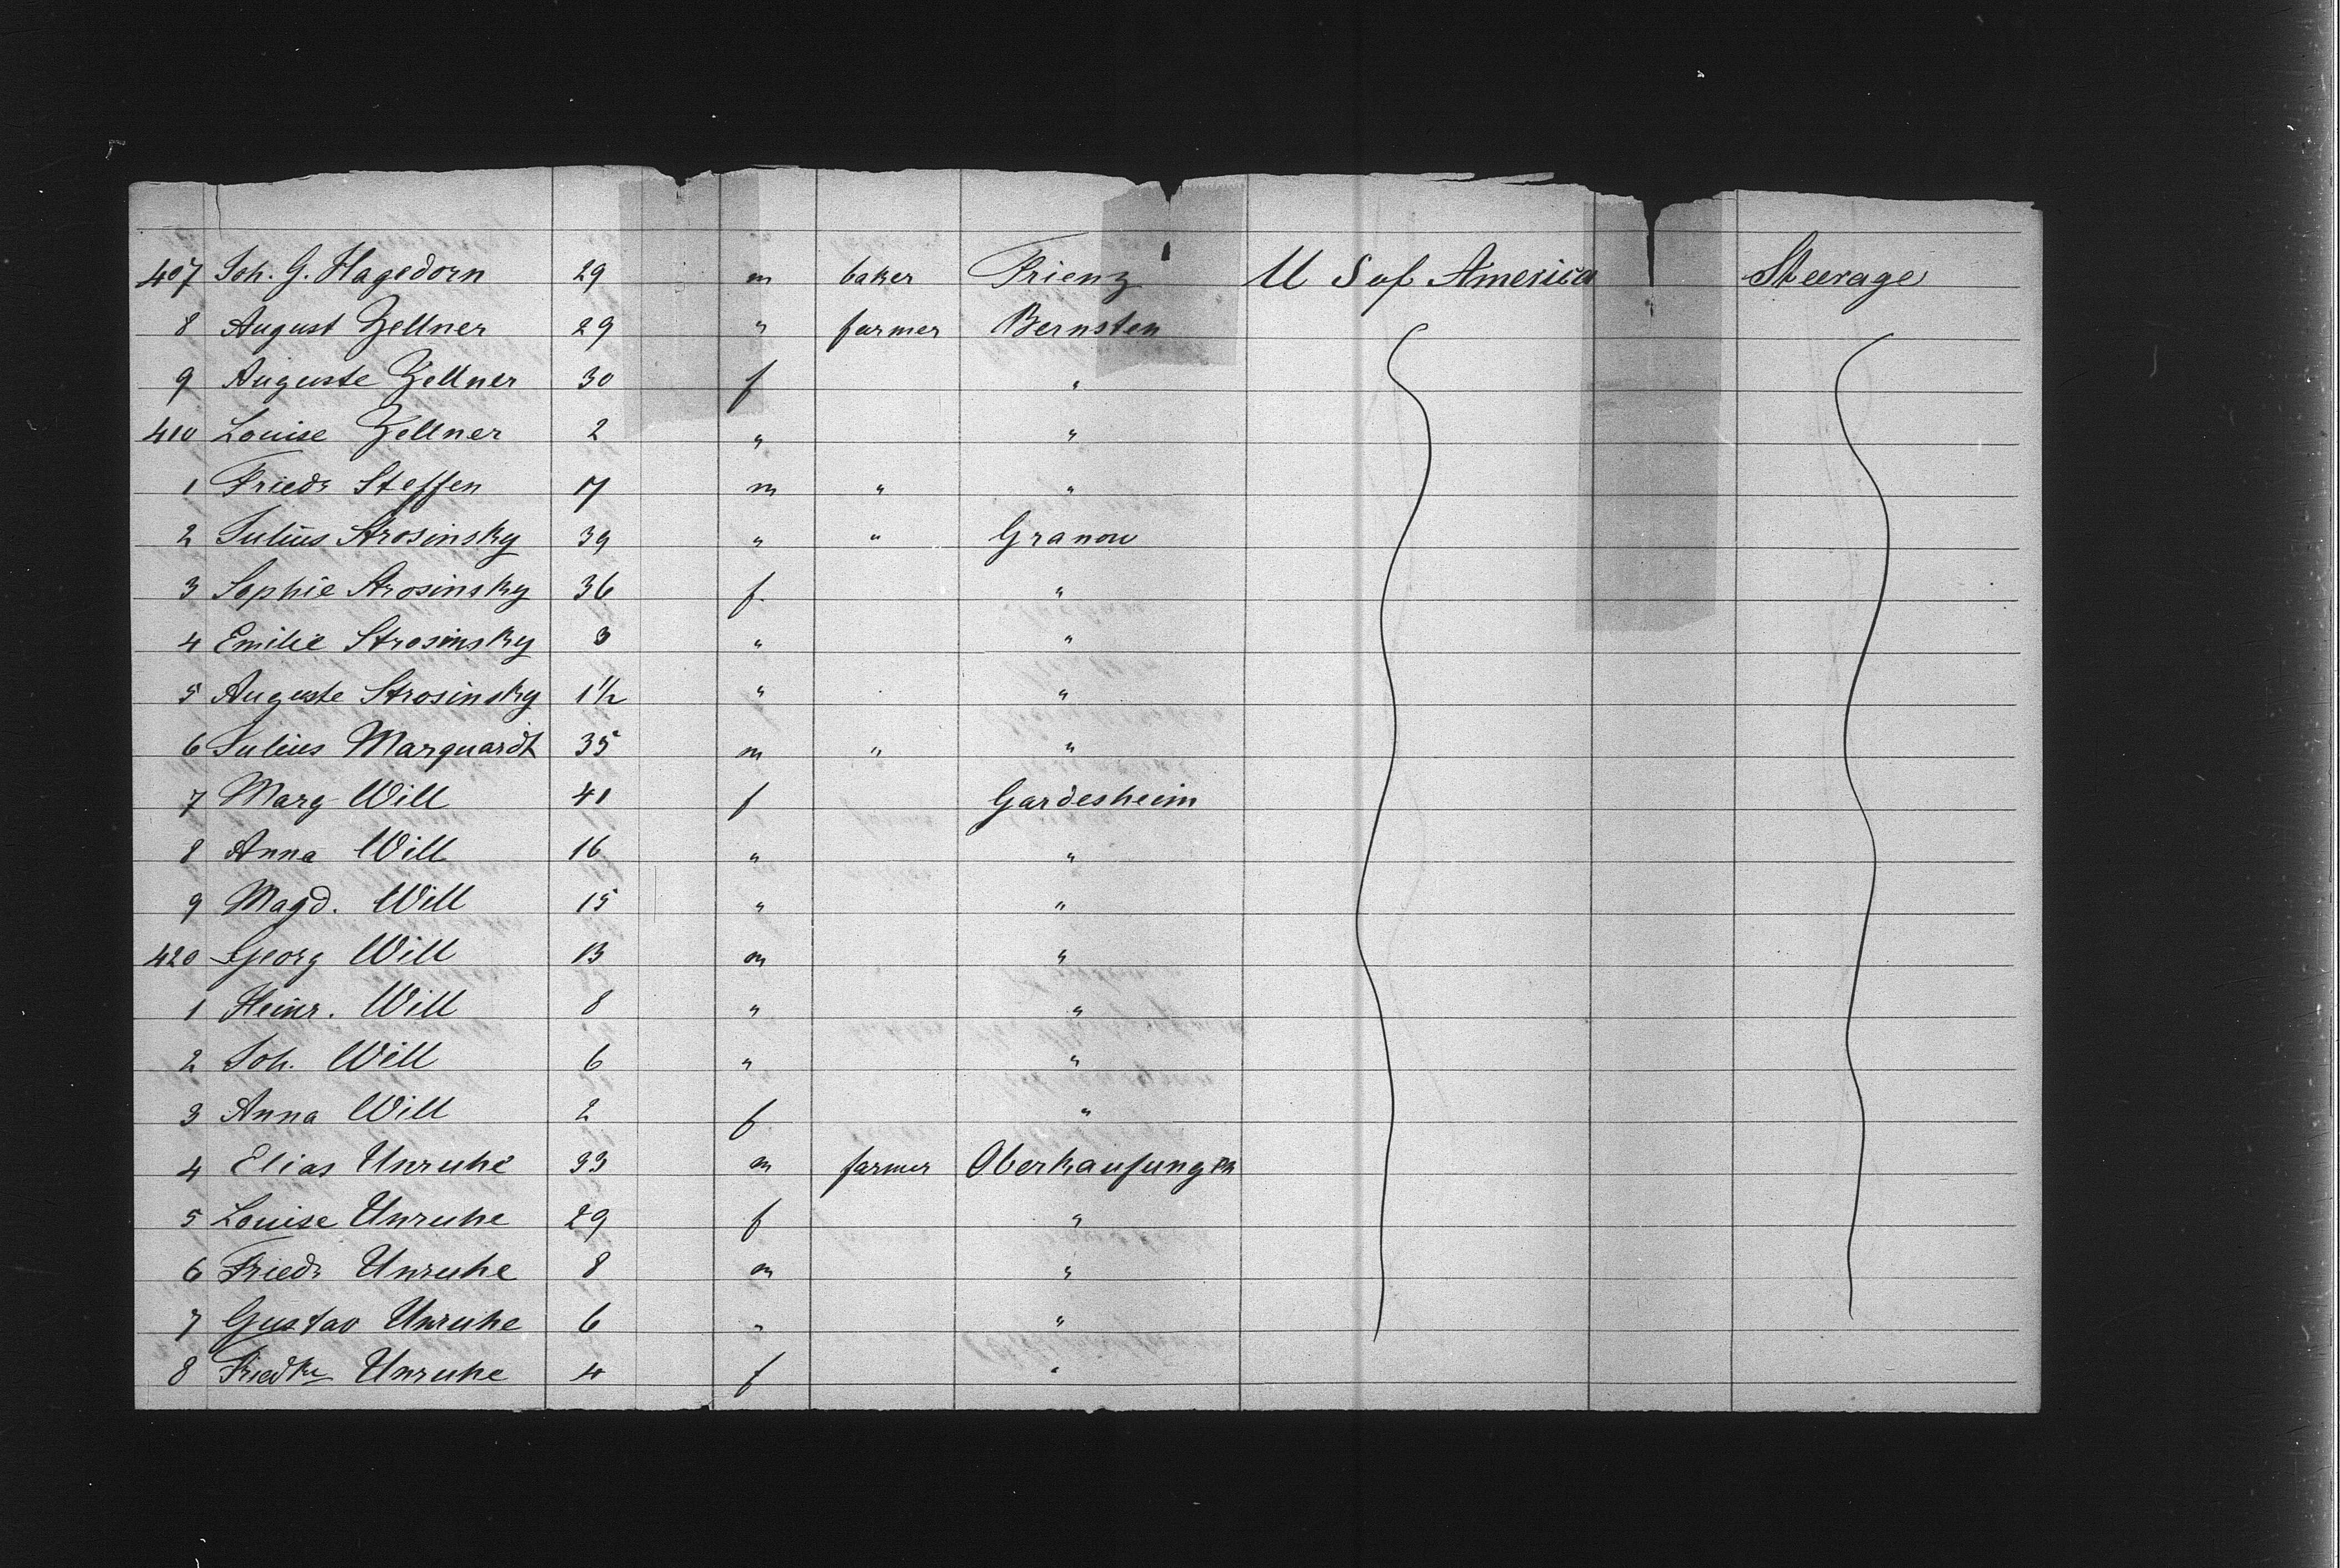 407 Joh. G. Hagedorn 29 m baker Prienz U S of America Steerage
8 August Zellner 29 " farmer Bernsten
9 Auguste Zellner 30 f "
410 Louise Zellner 2 " "
1 Friedr Steffen 17 m " "
2 Julius Strosinsky 39 " " Granow
3 Sophie Strosinsky 36 f. "
4 Emilie Strosinsky 3 " "
5 Auguste Strosinsky 1 1/2 " "
6 Julius Marquardt 35 m " "
7 Marg Will 41 f Gardesheim
8 Anna Will 16 " "
9 Magd. Will 15 " "
420 Georg Will 13 m "
1 Heinr. Will 8 " "
2 Joh. Will 6 " "
3 Anna Will 2 f "
4 Elias Unruhe 33 m farmer Oberkaufungen
5 Louise Unruhe 29 f "
6 Friedr Unruhe 8 m "
7 Gustav Unruhe 6 " "
8 Friedke Unruhe 4 f "